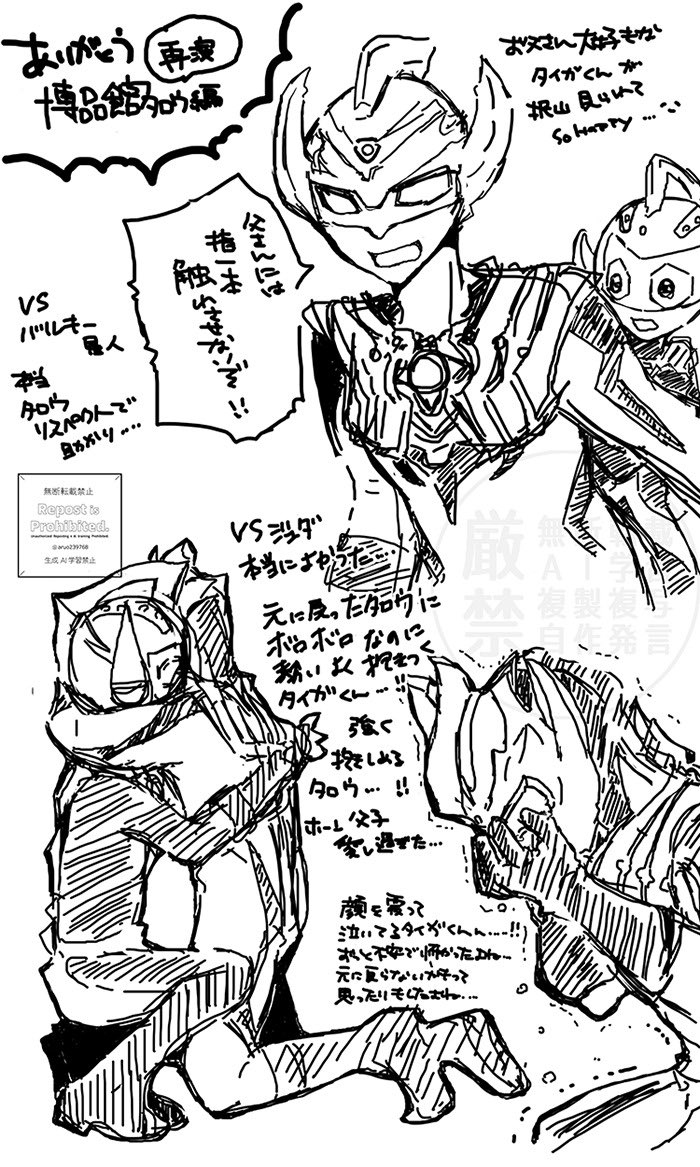 ありがとう
再演
博品館タロウ編
お父さん大好きな
タイガくんが
沢山見られて
So Happy…
父さんには
指一本
触れさせないぞ!!
VS
バルキー
星人
本当
タロウ
リスペクトで
助かり…
無断転載禁止
Repost is
Prohibited.
@aruo239768
生成AI学習禁止
VSジュダ
本当によかった…
元に戻ったタロウに
ボロボロなのに
勢いよく抱きつく
タイガくん…!!
強く
抱きしめる
タロウ…!!
父子
愛し過ぎた…
厳禁
無断転載
AI学習
複製複写
自作発言
顔を覆って
泣いてるタイガくん…!!
ずっと不安で怖かったよね…
元に戻らないかもって
思ったりもしたよね…